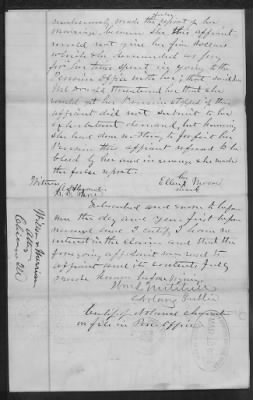 maliciously made the false report of her
marriage because she this affiant
would not give her five dollars
which she demanded as pay
for her time spent in going to the
Pension Office with her; that said
Mc threatened her that she
would get her Pension stopped if this
affiant did not submit to her
exhorbitant demand, but knowing
she had done nothing to forfeit her
Pension this affiant refused to be
bleed by her and in revenge she made
the false report.
her
Ellen Moore
mark
Witness
Subscribed and sworn to before
me the day and year first before
named and I certify I have no
interest in the claim and that the
foregoing affidavit was read to
affiant and its contents fully
made known before signing
Notary Public
Certificate of Notarial
on file in Pension Office
Attys
Chicago Ill